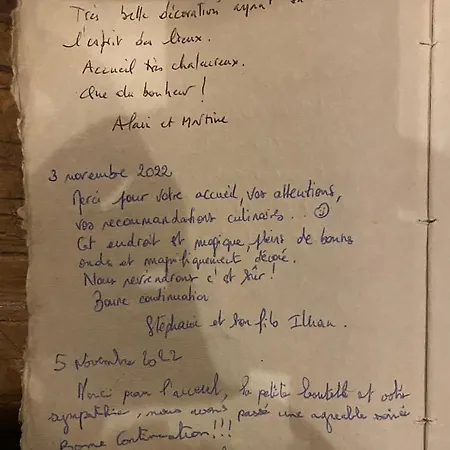 Très belle décoration ayant su
l'esprit des lieux.
Accueil très chaleureux.
Que du bonheur !
Alain et Martine
3 novembre 2022
Merci pour votre accueil, vos attentions,
vos recommandations culinaires... ☺
Cet endroit et magique, pleins de bonnes
ondes et magnifiquement décoré.
Nous reviendrons c'et sûr !
Bonne continuation
Stéphanie et son fils Ilhan.
5 Novembre 2022
Merci pour l'accueil, la petite bouteille et votre
sympathie, nous avons passé une agréable soirée
Bonne Continuation!!!